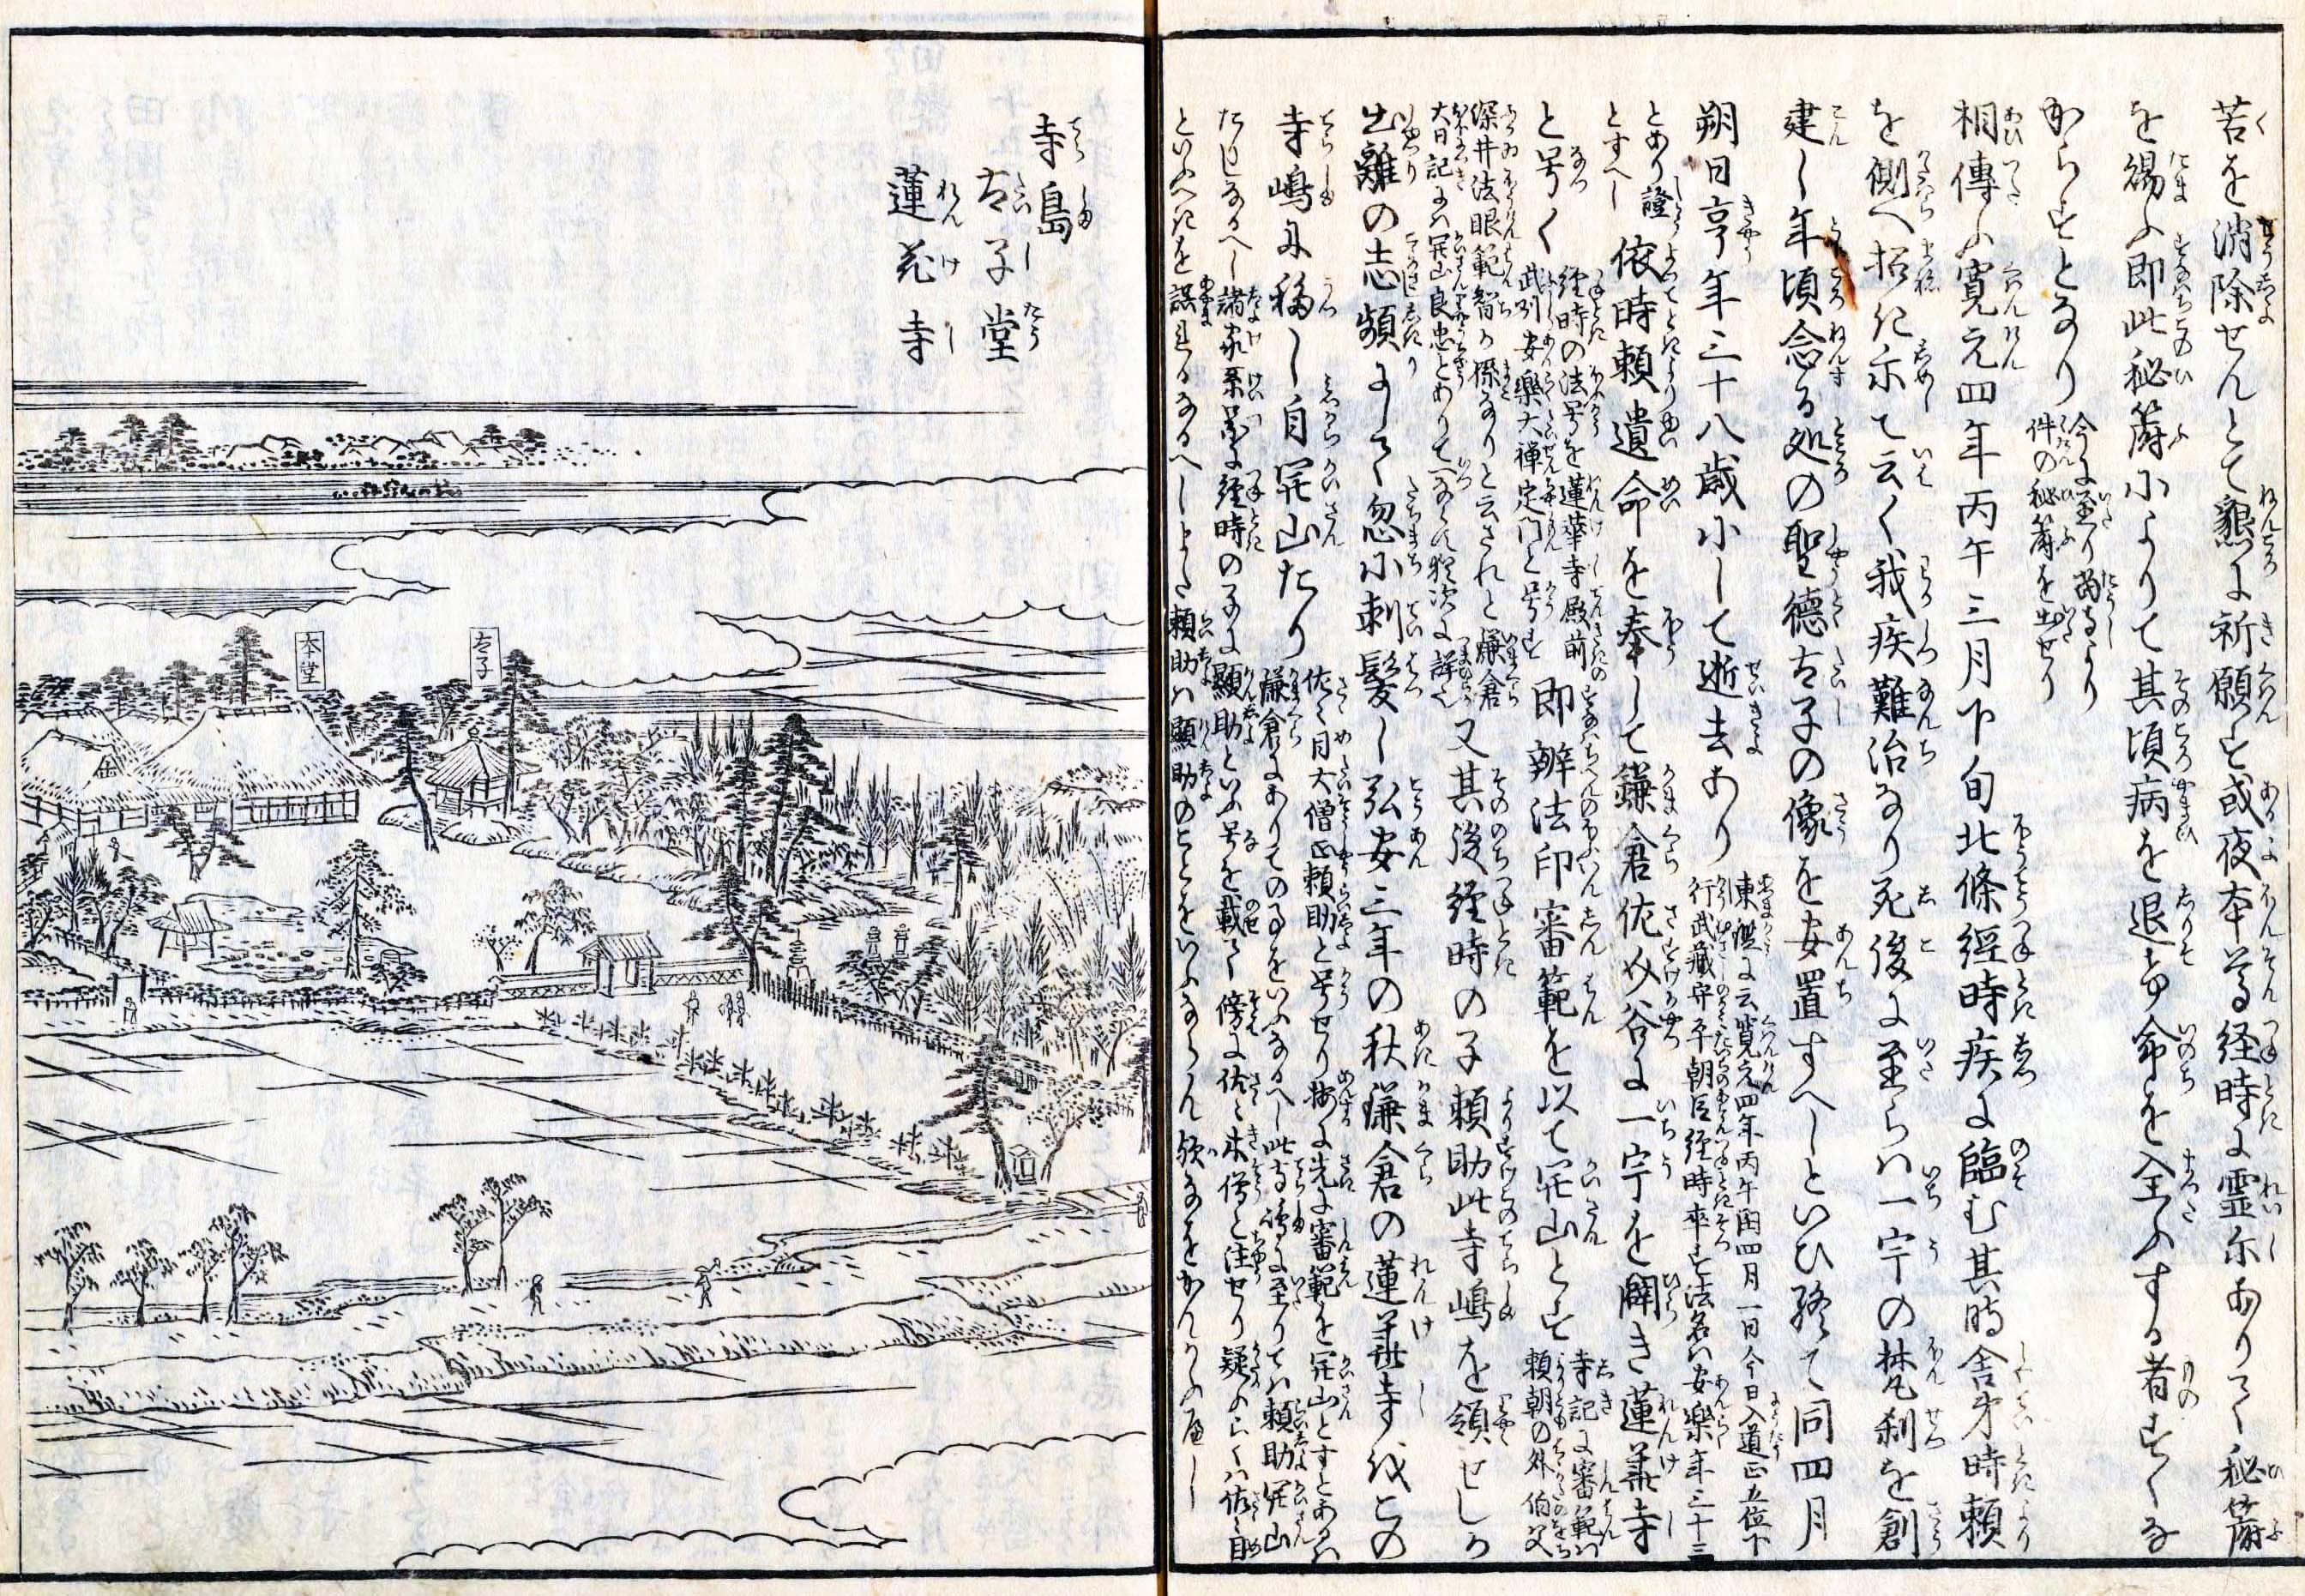 苦を消除せんとて懇に祈願す或夜本尊経時に霊示ありて秘符
を得
を賜ふ即此秘符によりて其頃病を退け命を全ふする者すくな
からずとなり
今に至り當寺より
件の秘符を出せり
相傳ふ寛元四年丙午三月下旬北條經時疾に臨む其時舎弟時頼
を側へ招き示て云く我疾難治なり死後に至らハ一宇の梵刹を創
建し年頃念る処の聖徳太子の像を安置すへしといひ終て同四月
朔日享年三十八歳にして逝去あり
東鑑に云寛元四年丙午閏四月一日今日入道正五位下
行武藏守平朝臣経時卒す法名ハ安樂年三十三
とあり證
とすへし
依時頼遺命を奉して鎌倉佐々谷に一宇を闢き蓮華寺
と号く
経時の法号を蓮華寺殿前
武州安樂大禅定門と号す
即辨法印審範を以て開山とす
寺記に審範ハ
頼朝の外伯父
深井法眼範智の孫なりと云されと鎌倉
大日記にハ開山良忠とありて
又其後経時の子頼助此寺嶋を領せしか
出離の志頻にして忽に剃髪し弘安三年の秋鎌倉の蓮華寺をこの
寺嶋に移し自開山たり
佐々目大僧正頼助と号せり按に先に審範を開山とすとあるハ
鎌倉にありての事をいふなるへし此寺嶋に至りてハ頼助開山
たりしなるへし諸家系圖に経時の子に顯助といふ号を載て傍に佐々木僧と注せり疑らくハ佐々目
といふへきを誤れるなるへしまた頼助ハ顯助のことをいふならん
寺島
太子堂
蓮花寺
太子
本堂